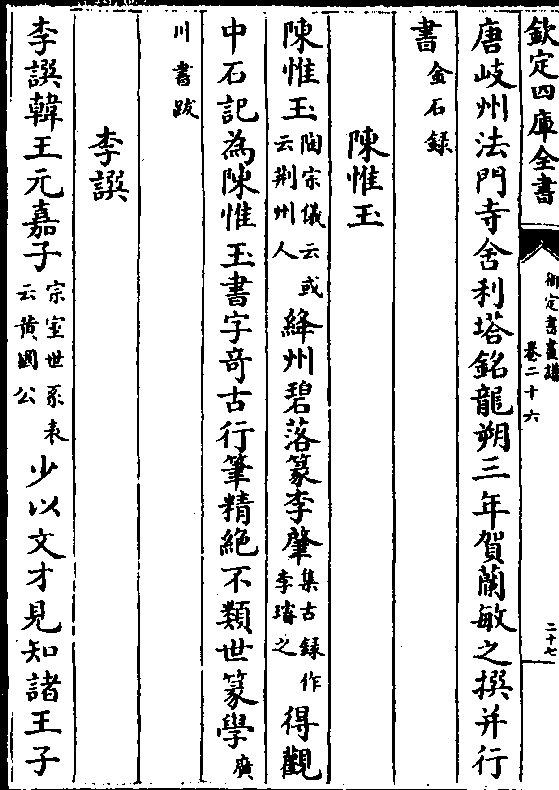 欽定四庫全書
御定書畫譜
卷二十六
二十七
唐岐州法門寺舍利塔銘龍朔三年賀蘭敏之撰并行
書金石録
陳惟玉
陳惟玉陶宗儀云或云荆州人絳州碧落篆李肇集古録作李璿之得觀
中石記為陳惟玉書字奇古行筆精絶不類世篆學廣
川書跋
李譔
李譔韓王元嘉子宗室世系表云黄國公少以文才見知諸王子